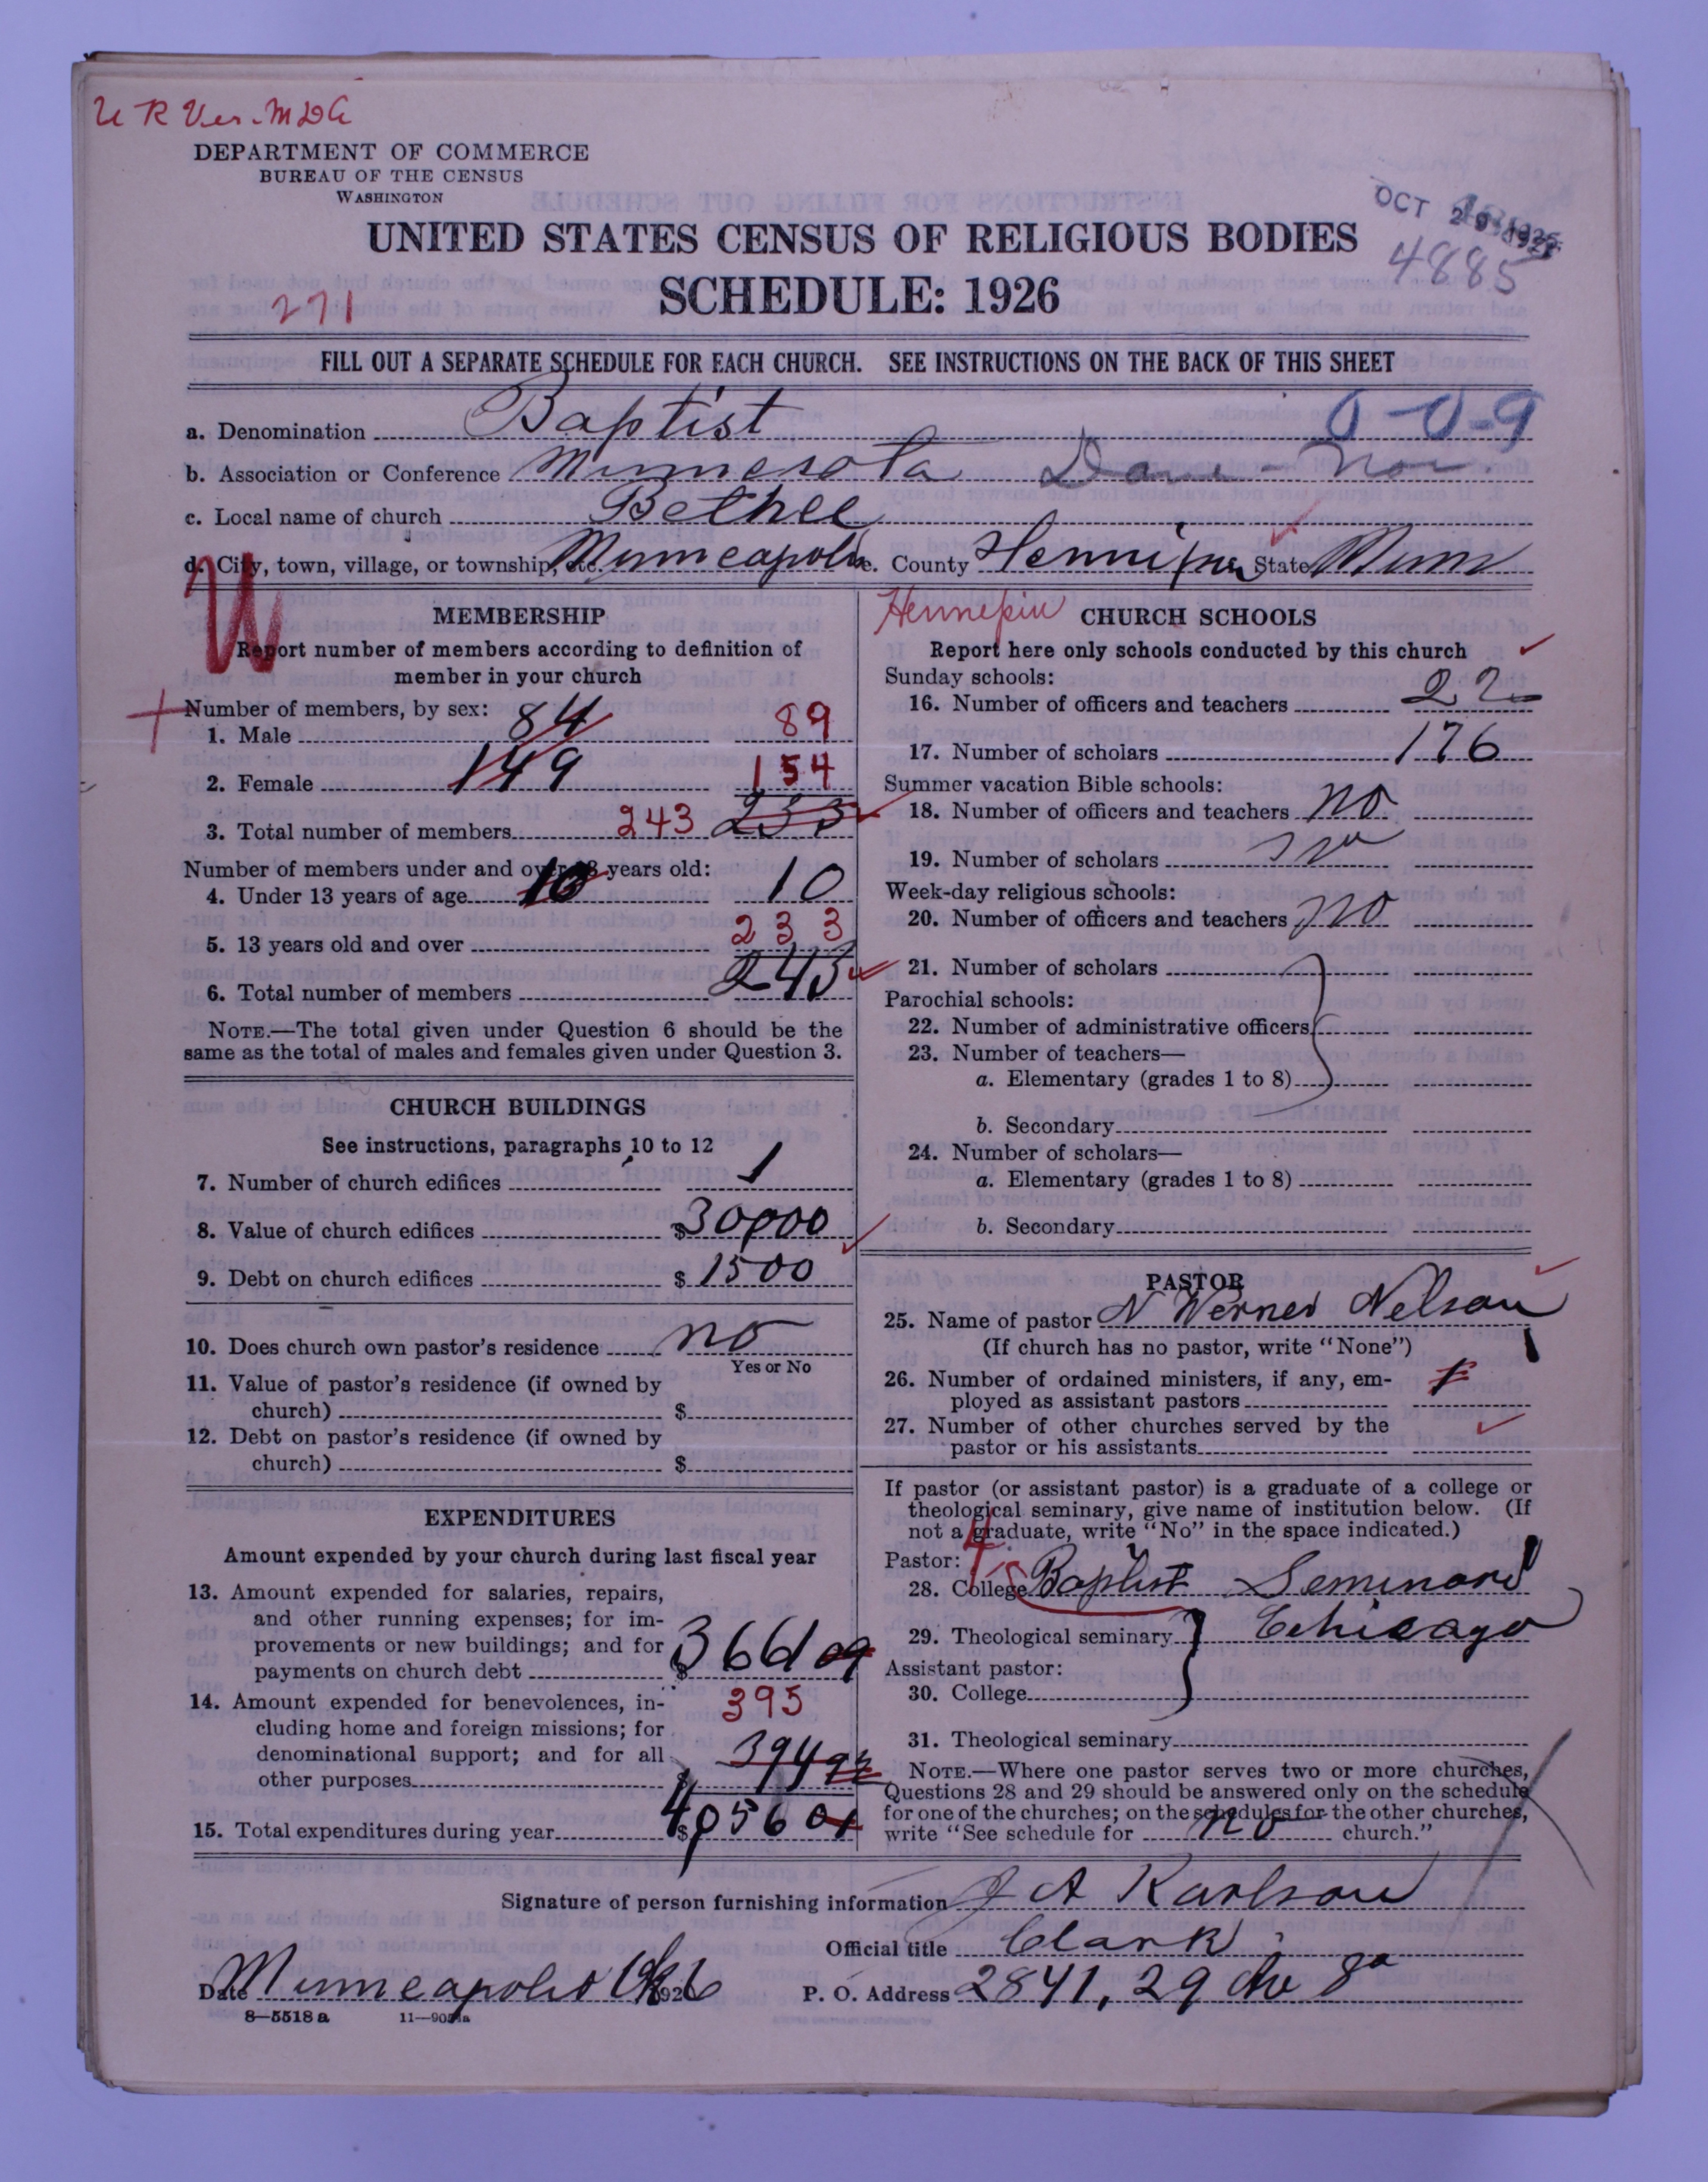 U R Ver. MDG
DEPARTMENT OF COMMERCE
BUREAU OF THE CENSUS
WASHINGTON
UNITED STATES CENSUS OF RELIGIOUS BODIES
SCHEDULE: 1926
OCT 29 1926
4885
271
FILL OUT A SEPARATE SCHEDULE FOR EACH CHURCH. SEE INSTRUCTIONS ON THE BACK OF THIS SHEET
0-0-9
a. Denomination Baptist
b. Association or Conference Minnesota Dane-Nor
c. Local name of church Bethel
d. City, town, village, or township, etc. Minneapolis e. County Hennipin State Minn
U
MEMBERSHIP
Report number of members according to definition of
member in your church
Number of members, by sex:
1. Male 84 89
2. Female 149 154
3. Total number of members 243 233
Number of members under and over 13 years old:
4. Under 13 years of age 10 10
5. 13 years old and over 233
6. Total number of members 243
NOTE.—The total given under Question 6 should be the
same as the total of males and females given under Question 3.
CHURCH BUILDINGS
See instructions, paragraphs 10 to 12
7. Number of church edifices 1
8. Value of church edifices $30000
9. Debt on church edifices $1500
10. Does church own pastor's residence no
Yes or No
11. Value of pastor's residence (if owned by
church) $
12. Debt on pastor's residence (if owned by
church) $
EXPENDITURES
Amount expended by your church during last fiscal year
13. Amount expended for salaries, repairs,
and other running expenses; for im-
provements or new buildings; and for
payments on church debt $3661 09
14. Amount expended for benevolences, in- 395
cluding home and foreign missions; for
denominational support; and for all
other purposes $ 394 92
15. Total expenditures during year $4056 01
Hennepin
CHURCH SCHOOLS
Report here only schools conducted by this church
Sunday schools:
16. Number of officers and teachers 22
17. Number of scholars 176
Summer vacation Bible schools:
18. Number of officers and teachers no
19. Number of scholars no
Week-day religious schools:
20. Number of officers and teachers no
21. Number of scholars
Parochial schools:
22. Number of administrative officers
23. Number of teachers—
a. Elementary (grades 1 to 8)
b. Secondary
24. Number of scholars—
a. Elementary (grades 1 to 8)
b. Secondary
PASTOR
25. Name of pastor N Werner Nelson
(If church has no pastor, write "None") 1
26. Number of ordained ministers, if any, em- 1
ployed as assistant pastors
27. Number of other churches served by the
pastor or his assistants
If pastor (or assistant pastor) is a graduate of a college or
theological seminary, give name of institution below. (If
not a graduate, write "No" in the space indicated.)
Pastor: 4
28. College Baptist Seminary
29. Theological seminary Chicago
Assistant pastor:
30. College
31. Theological seminary
NOTE.—Where one pastor serves two or more churches,
Questions 28 and 29 should be answered only on the schedule
for one of the churches; on the schedules for the other churches,
write "See schedule for no church."
Signature of person furnishing information J A Karlson
Official title Clark
Date Minneapolis 1926 P. O. Address 2841, 29 Ave So
8—5518 a